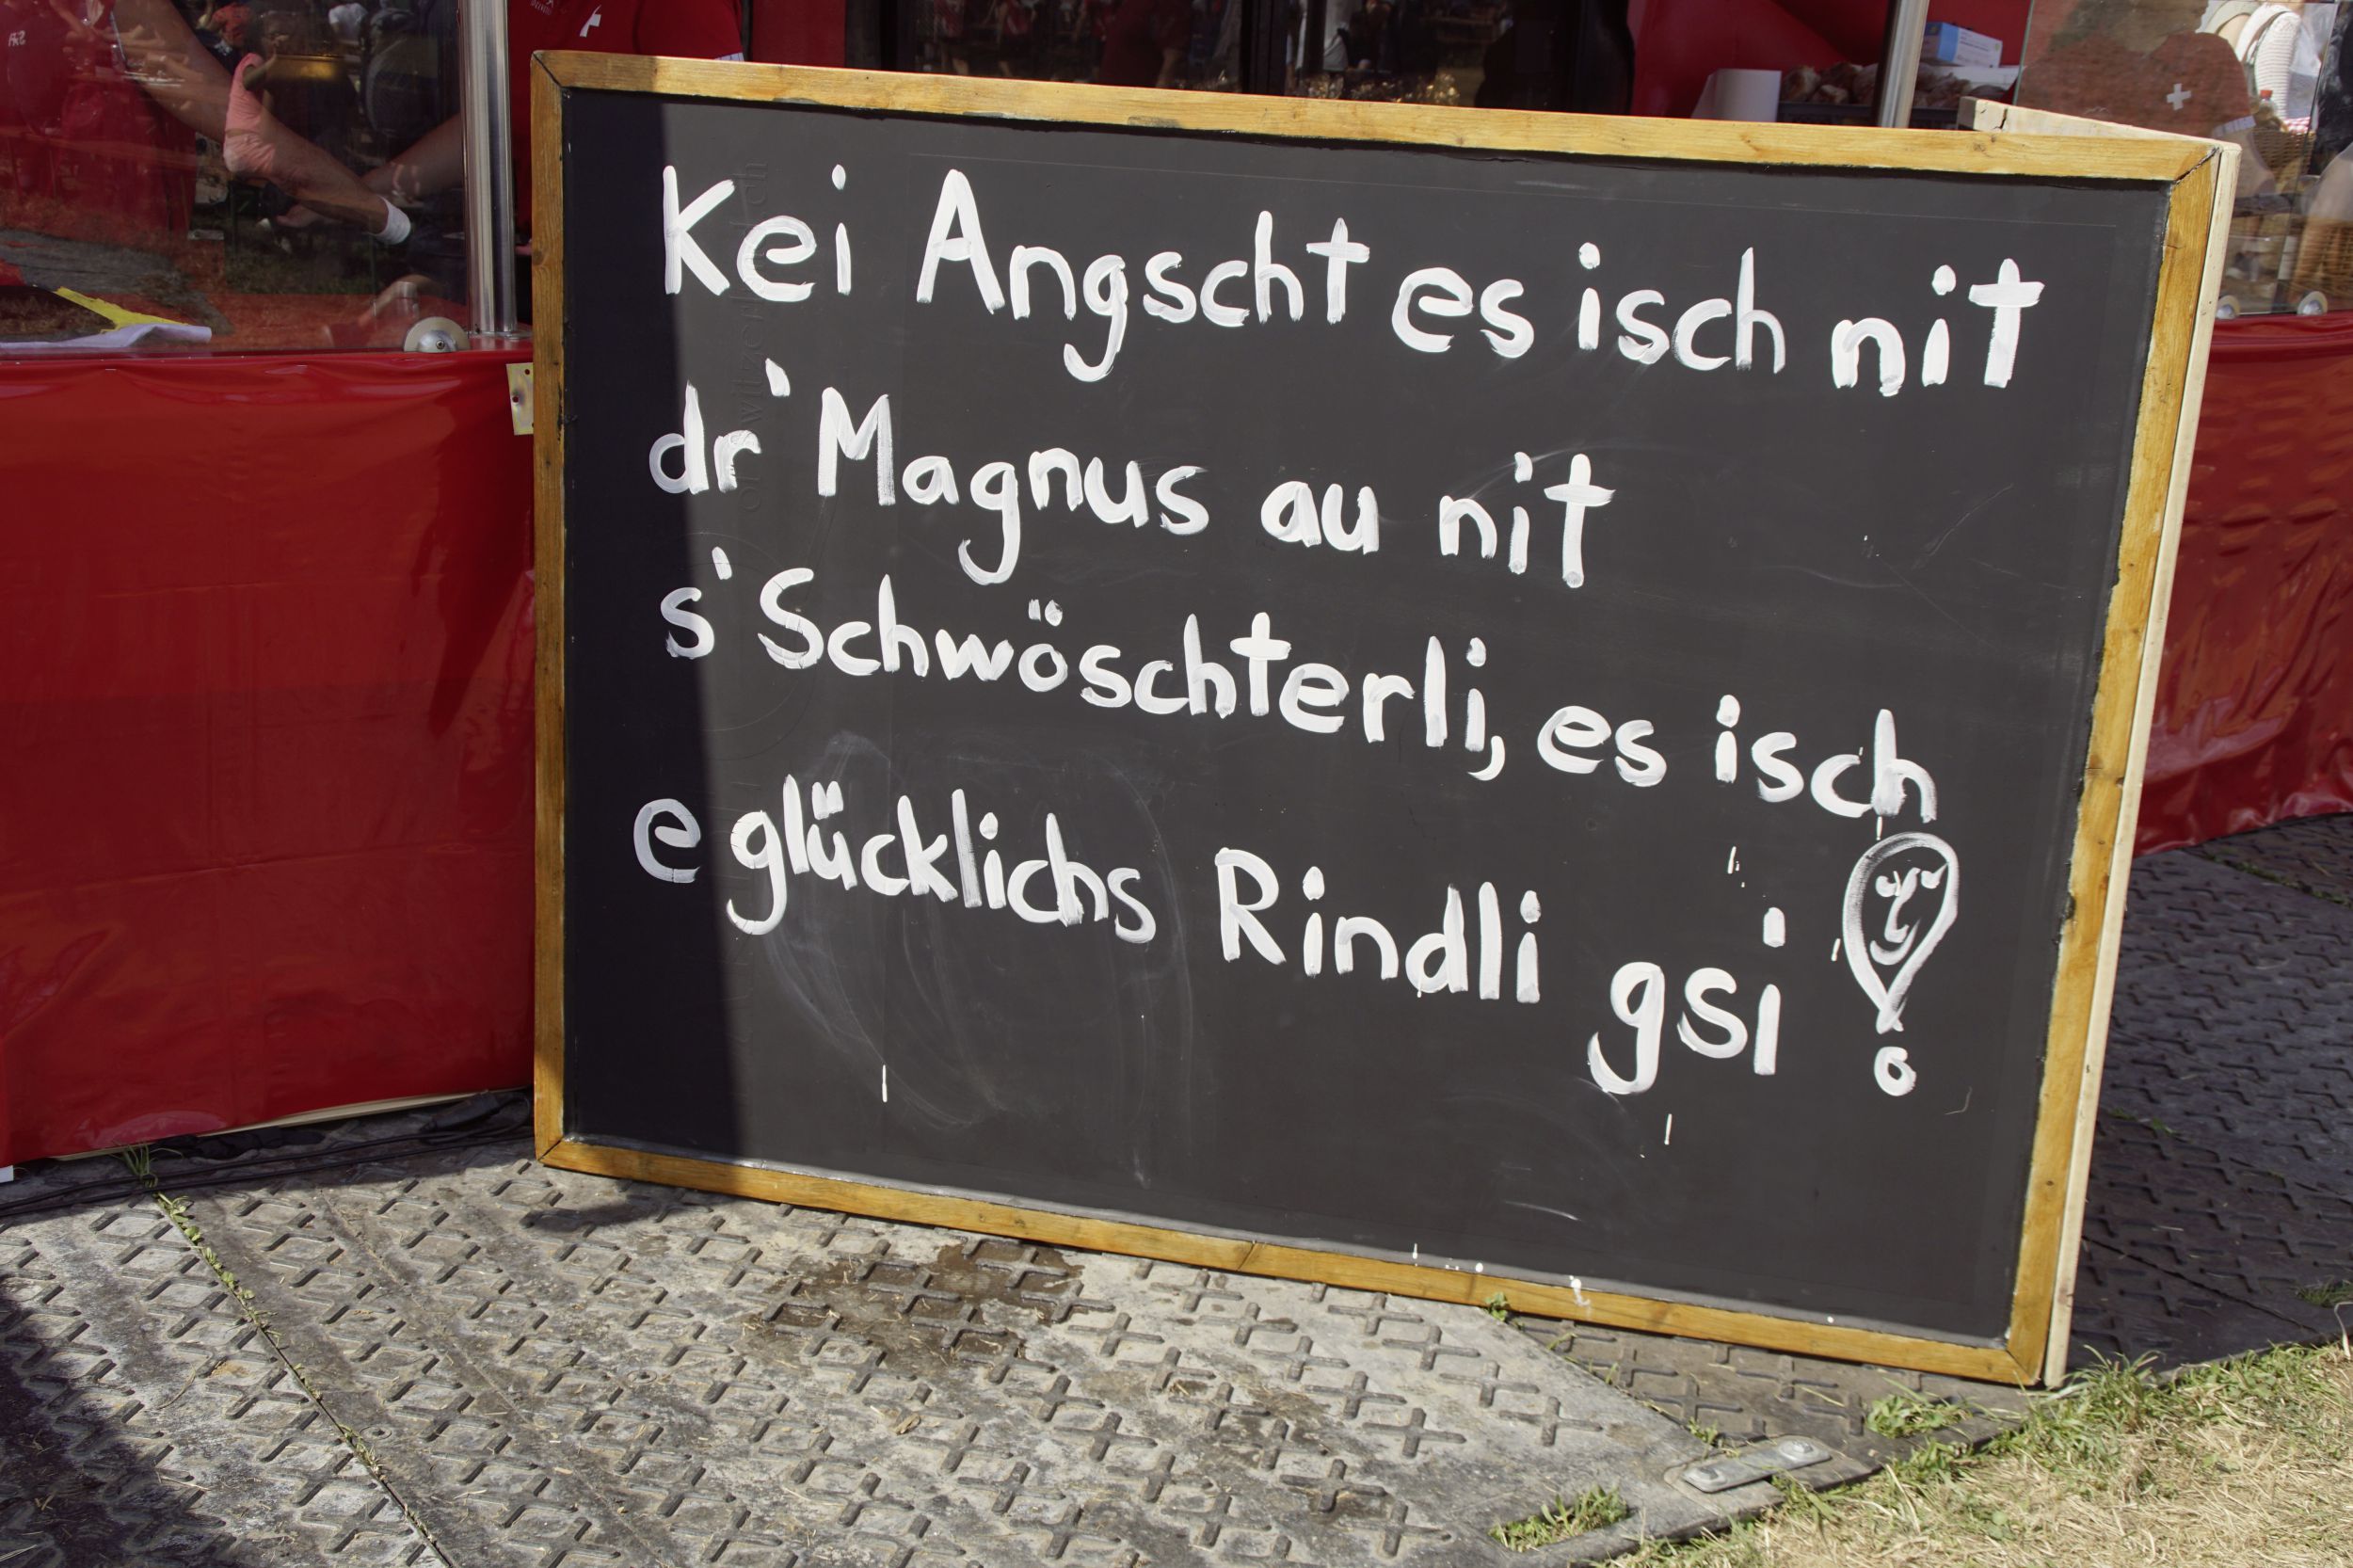 Kei Angscht es isch nit
dr' Magnus au nit
s' Schwöschterli, es isch
e glücklichs Rindli gsi!